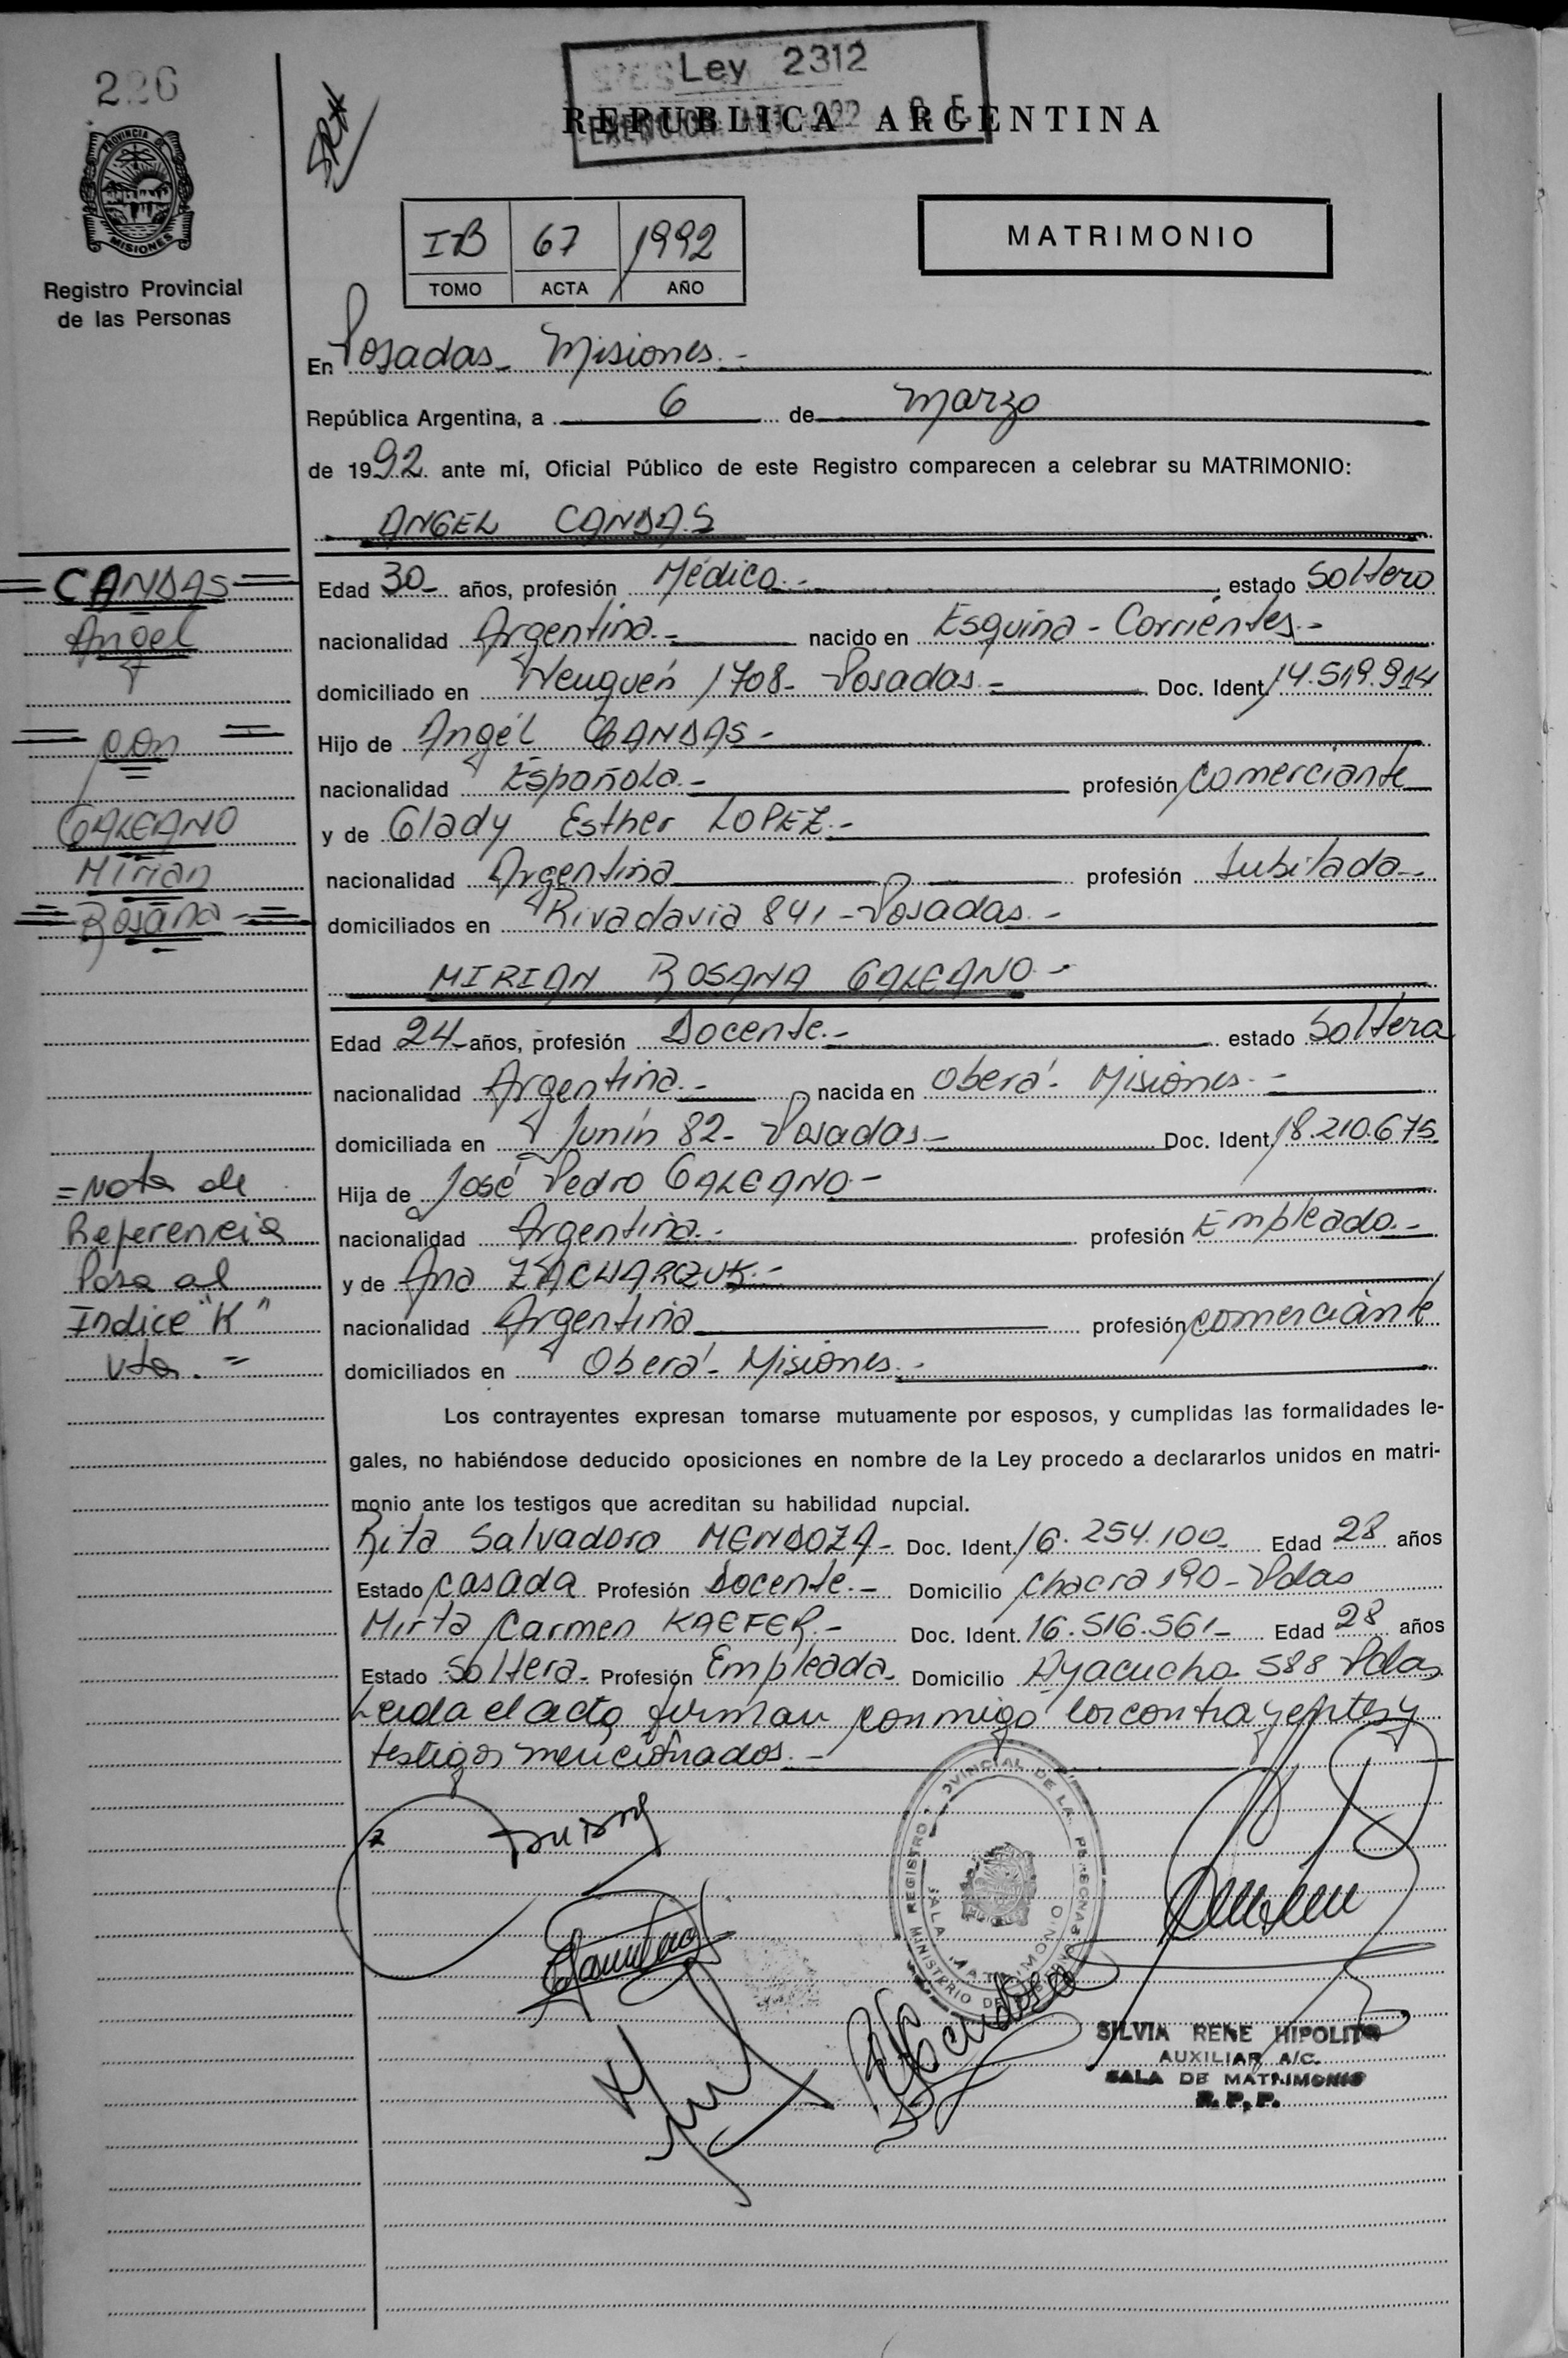 226
PROVINCIA DE
MISIONES
Registro Provincial
de las Personas
Ley 2312
REPUBLICA ARGENTINA
I-B 67 1992
TOMO ACTA AÑO
MATRIMONIO
En Posadas - Misiones.-
República Argentina, a 6 de Marzo
de 1992. ante mí, Oficial Público de este Registro comparecen a celebrar su MATRIMONIO:
ANGEL CANDAS
CANDAS
Angel
con
GALEANO
Mirian
Rosana
Edad 30 años, profesión Médico.- estado Soltero
nacionalidad Argentina.- nacido en Esquina - Corrientes.-
domiciliado en Neuquén 1708 - Posadas.- Doc. Ident. 14.519.914
Hijo de Angel CANDAS.-
nacionalidad Española.- profesión Comerciante
y de Glady Esther LOPEZ.-
nacionalidad Argentina profesión Jubilada.-
domiciliados en Rivadavia 841 - Posadas.-
MIRIAN ROSANA GALEANO.-
Edad 24 años, profesión Docente.- estado Soltera
nacionalidad Argentina.- nacida en Oberá - Misiones.-
domiciliada en Junín 82 - Posadas.- Doc. Ident. 18.210.675.
Hija de José Pedro GALEANO.-
nacionalidad Argentina.- profesión Empleado.-
y de Ana ZACHARCZUK.-
nacionalidad Argentina profesión comerciante
domiciliados en Oberá - Misiones.-
=Nota de
Referencia
Pasa al
Indice "K"
Vta. =
Los contrayentes expresan tomarse mutuamente por esposos, y cumplidas las formalidades le-
gales, no habiéndose deducido oposiciones en nombre de la Ley procedo a declararlos unidos en matri-
monio ante los testigos que acreditan su habilidad nupcial.
Rita Salvadora MENDOZA - Doc. Ident. 16.254.100 Edad 28 años
Estado casada Profesión Docente.- Domicilio Chacra 190 - Pdas
Mirta Carmen KAEFER.- Doc. Ident. 16.516.561 - Edad 28 años
Estado Soltera - Profesión Empleada - Domicilio Ayacucho 588 Pdas
Leida el acta firman conmigo los contrayentes y
testigos mencionados.-
REGISTRO PROVINCIAL DE LA PERSONAS
SALA MATRIMONIO
MINISTERIO DE
SILVIA RENE HIPOLITO
AUXILIAR A/C.
SALA DE MATRIMONIO
R.P.P.